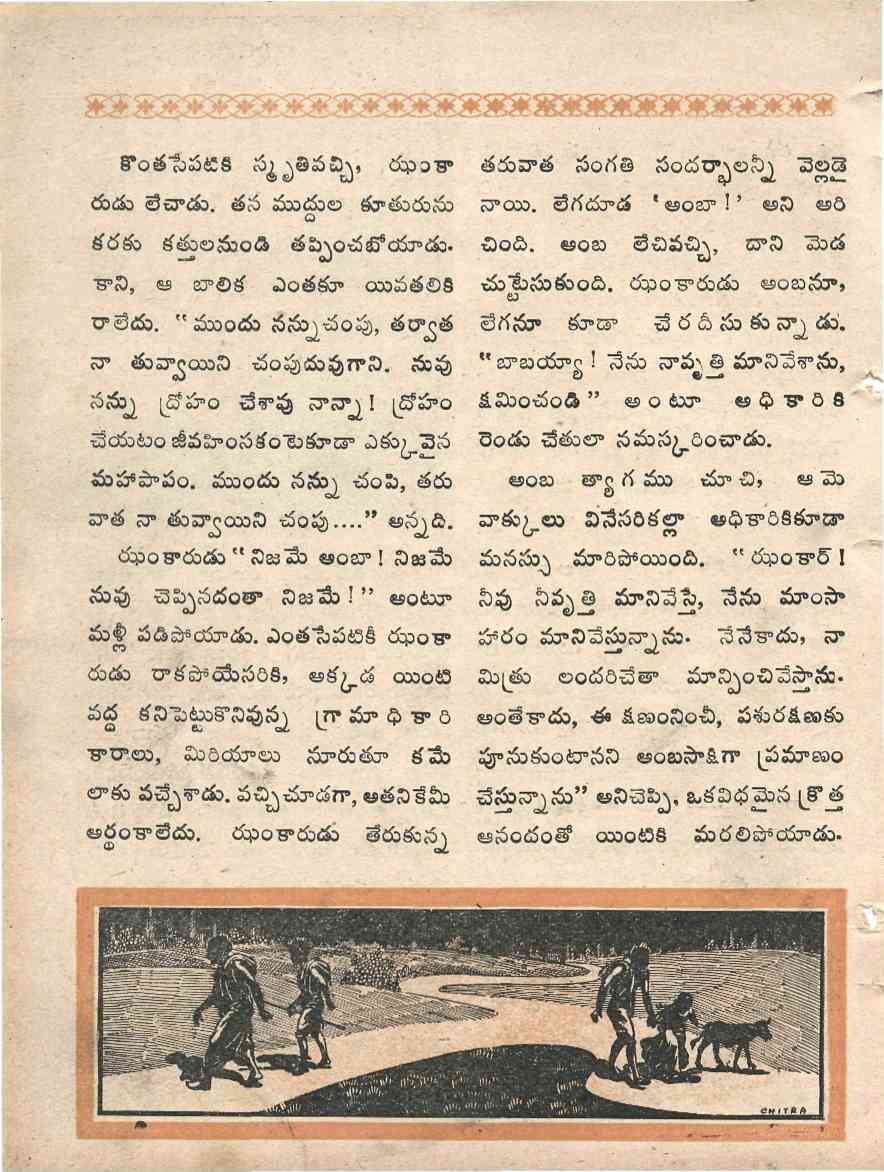 కొంతసేపటికి స్మృతివచ్చి, ఝంకా
రుడు లేచాడు. తన ముద్దుల కూతురును
కరకు కత్తులనుండి తప్పించబోయాడు.
కాని, ఆ బాలిక ఎంతకూ యివతలికి
రాలేదు. “ముందు నన్నుచంపు, తర్వాత
నా తువ్వాయిని చంపుదువుగాని. నువు
నన్ను ద్రోహం చేశావు నాన్నా! ద్రోహం
చేయటం జీవహింసకంటెకూడా ఎక్కువైన
మహాపాపం. ముందు నన్ను చంపి, తరు
వాత నా తువ్వాయిని చంపు....” అన్నది.
ఝంకారుడు “నిజమే అంబా! నిజమే
నువు చెప్పినదంతా నిజమే!” అంటూ
మళ్లీ పడిపోయాడు. ఎంతసేపటికీ ఝంకా
రుడు రాకపోయేసరికి, అక్కడ యింటి
వద్ద కనిపెట్టుకొనివున్న గ్రామాధికారి
కారాలు, మిరియాలు నూరుతూ కమే
లాకు వచ్చేశాడు. వచ్చిచూడగా, అతనికేమీ
అర్థంకాలేదు. ఝంకారుడు తేరుకున్న
తరువాత సంగతి సందర్భాలన్నీ వెల్లడై
నాయి. లేగదూడ ‘అంబా!’ అని అరి
చింది. అంబ లేచివచ్చి, దాని మెడ
చుట్టేసుకుంది. ఝంకారుడు అంబనూ,
లేగనూ కూడా చేరదీసుకున్నాడు.
“బాబయ్యా! నేను నావృత్తి మానివేశాను,
క్షమించండి” అంటూ అధికారికి
రెండు చేతులా నమస్కరించాడు.
అంబ త్యాగము చూచి, ఆమె
వాక్కులు వినేసరికల్లా అధికారికికూడా
మనస్సు మారిపోయింది. “ఝంకార్!
నీవు నీవృత్తి మానివేస్తే, నేను మాంసా
హారం మానివేస్తున్నాను. నేనేకాదు, నా
మిత్రు లందరిచేతా మాన్పించివేస్తాను.
అంతేకాదు, ఈ క్షణంనించీ, పశురక్షణకు
పూనుకుంటానని అంబసాక్షిగా ప్రమాణం
చేస్తున్నాను” అనిచెప్పి, ఒకవిధమైన క్రొత్త
ఆనందంతో యింటికి మరలిపోయాడు.
CHITRA